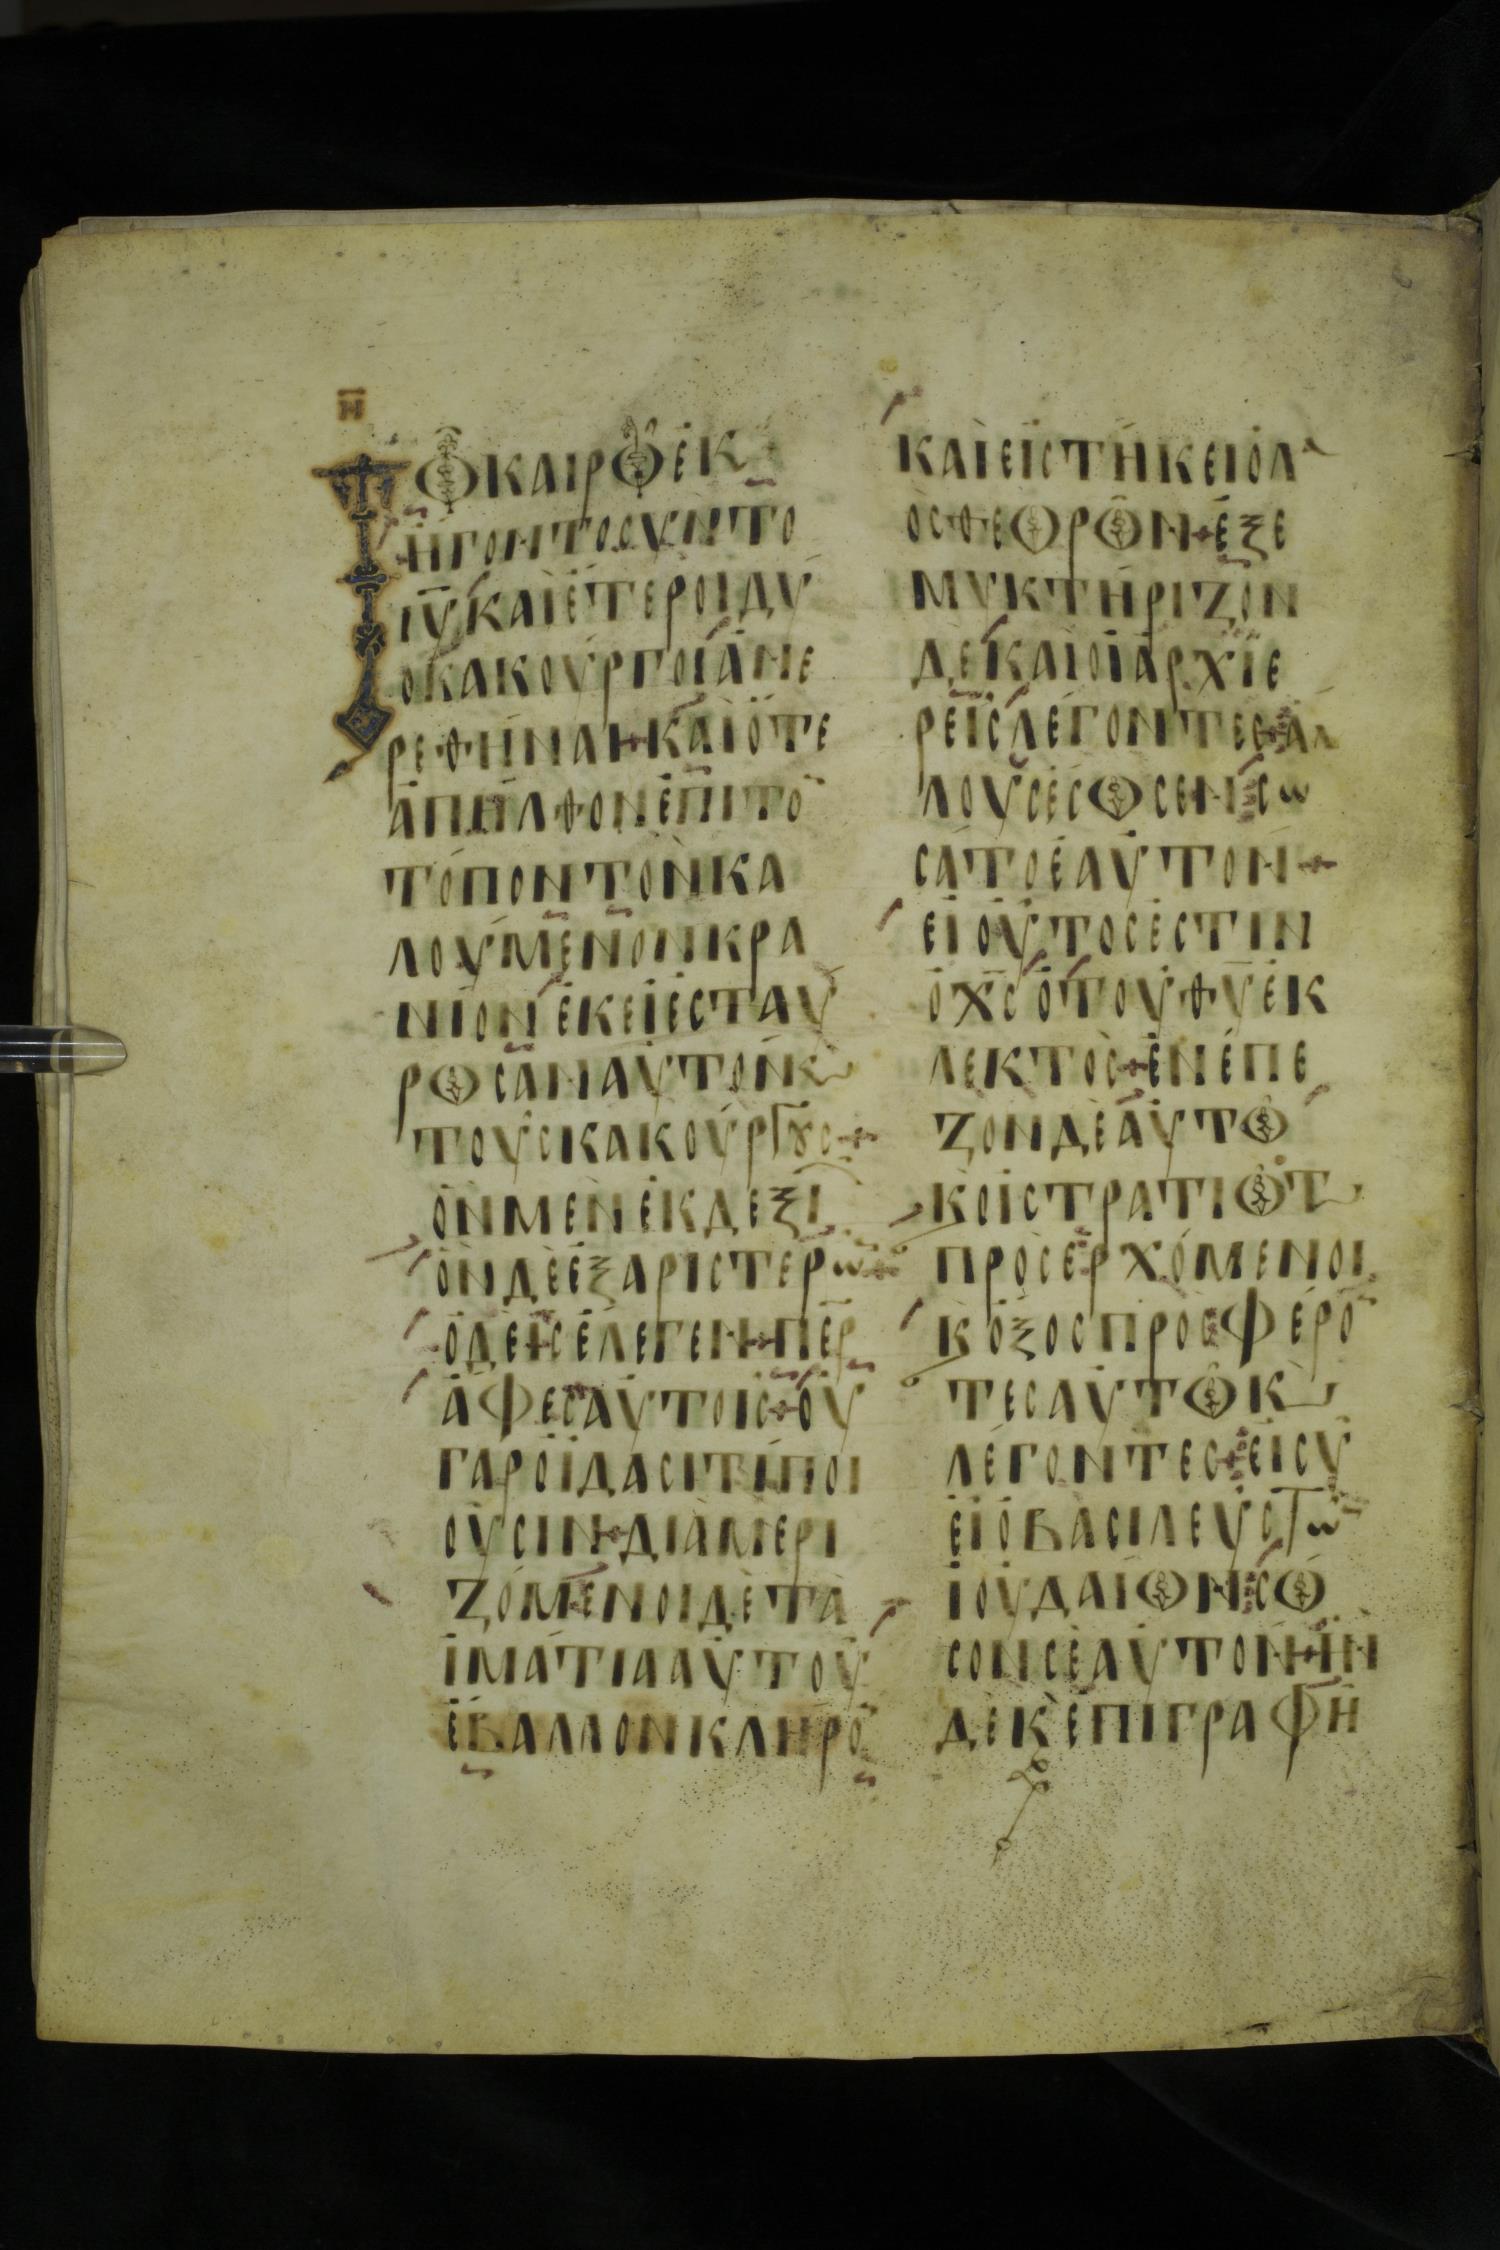 Η
ΤΩ ΚΑΙΡΩ ἘΚ
ἬΓΟΝΤΟ ΣΥΝ ΤΩ
ΙΥ ΚΑΙ ἝΤΕΡΟΙ ΔΥ
Ο ΚΑΚΟΥΡΓΟΙ ἈΝΕ
ΡΕΘΗΝΑΙ + ΚΑΙ ὍΤΕ
ἈΠΗΛΘΟΝ ἘΠΙ ΤΟ
ΤΌΠΟΝ ΤῸΝ ΚΑ
ΛΟΎΜΕΝΟΝ ΚΡΑ
ΝΙΟΝ ἘΚΕΙ ἘΣΤΑΥ
ΡΩΣΑΝ ΑΥΤΟΝ Κ
ΤΟΥΣ ΚΑΚΟΎΡΓΟΥΣ +
ὋΝ ΜΕΝ ἘΚ ΔΕΞΙ
ὋΝ ΔῈ ἘΞ ΑΡΙΣΤΕΡΩ +
Ὁ ΔΕ ΙΣ ἜΛΕΓΕΝ + ΠΕΡ
ἌΦΕΣ ΑΥΤΟΙΣ + ΟΥ
ΓΑΡ ΟΙΔΑΣΙ ΤΙ ΠΟΙ
ΟΥΣΙΝ + ΔΙΑΜΕΡΙ
ΖΌΜΕΝΟΙ ΔῈ ΤᾺ
ἹΜΆΤΙΑ ΑΥΤΟΥ
ἜΒΑΛΛΟΝ ΚΛΗΡΟ
ΚΑῚ ΕἹΣΤΉΚΕΙ Ὁ ΛΑ
ῸΣ ΘΕΩΡΩΝ + ἘΞΕ
ΜΥΚΤΉΡΙΖΟΝ
ΔῈ ΚΑΙ ΟἹ ἈΡΧΙΕ
ΡΕΙΣ ΛΈΓΟΝΤΕΣ + ἌΛ
ΛΟΥΣ ἜΣΩΣΕΝ + Σω
ΣΆΤΟ ἙΑΥΤΟΝ +
ΕἸ ΟΥΤΟΣ ἘΣΤΙΝ
Ὁ ΧΣ Ὁ ΤΟΥ ΘΥ ἘΚ
ΛΕΚΤΟΣ + ἘΝΈΠΕ
ΖΟΝ ΔῈ ΑΥΤΩ
Κ ΟἹ ΣΤΡΑΤΙΩΤ
ΠΡΟΣΕΡΧΌΜΕΝΟΙ
Κ ὌΞΟΣ ΠΡΟΣΦΈΡΟ
ΤΕΣ ΑΥΤΩ Κ
ΛΈΓΟΝΤΕΣ + ΕἸ ΣΥ
ΕἸ Ὁ ΒΑΣΙΛΕΥΣ Τω
ἸΟΥΔΑΙΩΝ + ΣΩ
ΣΟΝ ΣΕΑΥΤΟΝ + ἮΝ
ΔΕ Κ ἘΠΙΓΡΑΦΗ